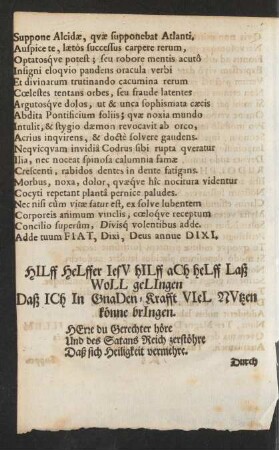 Suppone Alcidæ, qvæ supponebat Atlanti,
Auspice te, lætos successus carpere rerum,
Optatosqve potest; seu robore mentis acutô
Insigni eloqvio pandens oracula verbi
Et divinarum trutinando cacumina rerum
Cœlestes tentans orbes, seu fraude latentes
Argutosqve dolos, ut & unca sophismata cæcis
Abdita Pontificium foliis; qvæ noxia mundo
Intulit, & stygio dæmon revocavit ab orco,
Acrius inqvirens, & doctè solvere gaudens.
Neqvicqvam invidiâ Codrus sibi rupta qveratur
Ilia, nec noceat spinosa calumnia famæ
Crescenti, rabidos dentes in dente fatigans.
Morbus, noxa, dolor, qvæqve hîc nocitura videntur
Cocyti repetant plantâ pernice paludes.
Nec nisi cùm vitæ satur est, ex solve lubentem
Corporeis animum vinclis, cœloqve receptum
Concilio superûm, Divisq; volentibus adde.
Adde tuum FIAT, Dixi, Deus annue DIXI,
HILff HeLffer IesV hILff aCh heLff Laß
WoLL geLIngen
Daß ICh In GnaDen-Krafft VIeL NVtzen
könne brIngen.
HErr du Gerechter höre
Und des Satans Reich zerstöhre
Daß sich Heiligkeit vermehre.
Durch